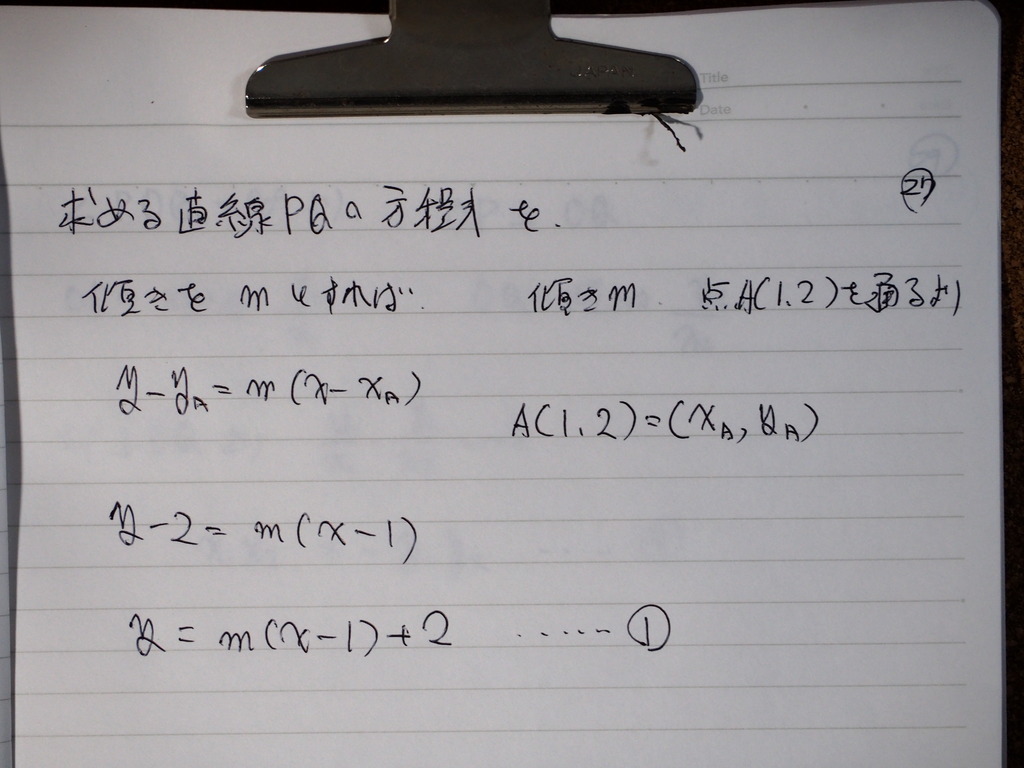 JAPAN
Title
Date
㉗
求める直線PQの方程式を.
傾きをmとすれば. 傾きm. 点A(1.2)を通るより
y-y_A=m(x-x_A)
A(1.2)=(x_A,y_A)
y-2=m(x-1)
y=m(x-1)+2 ......①